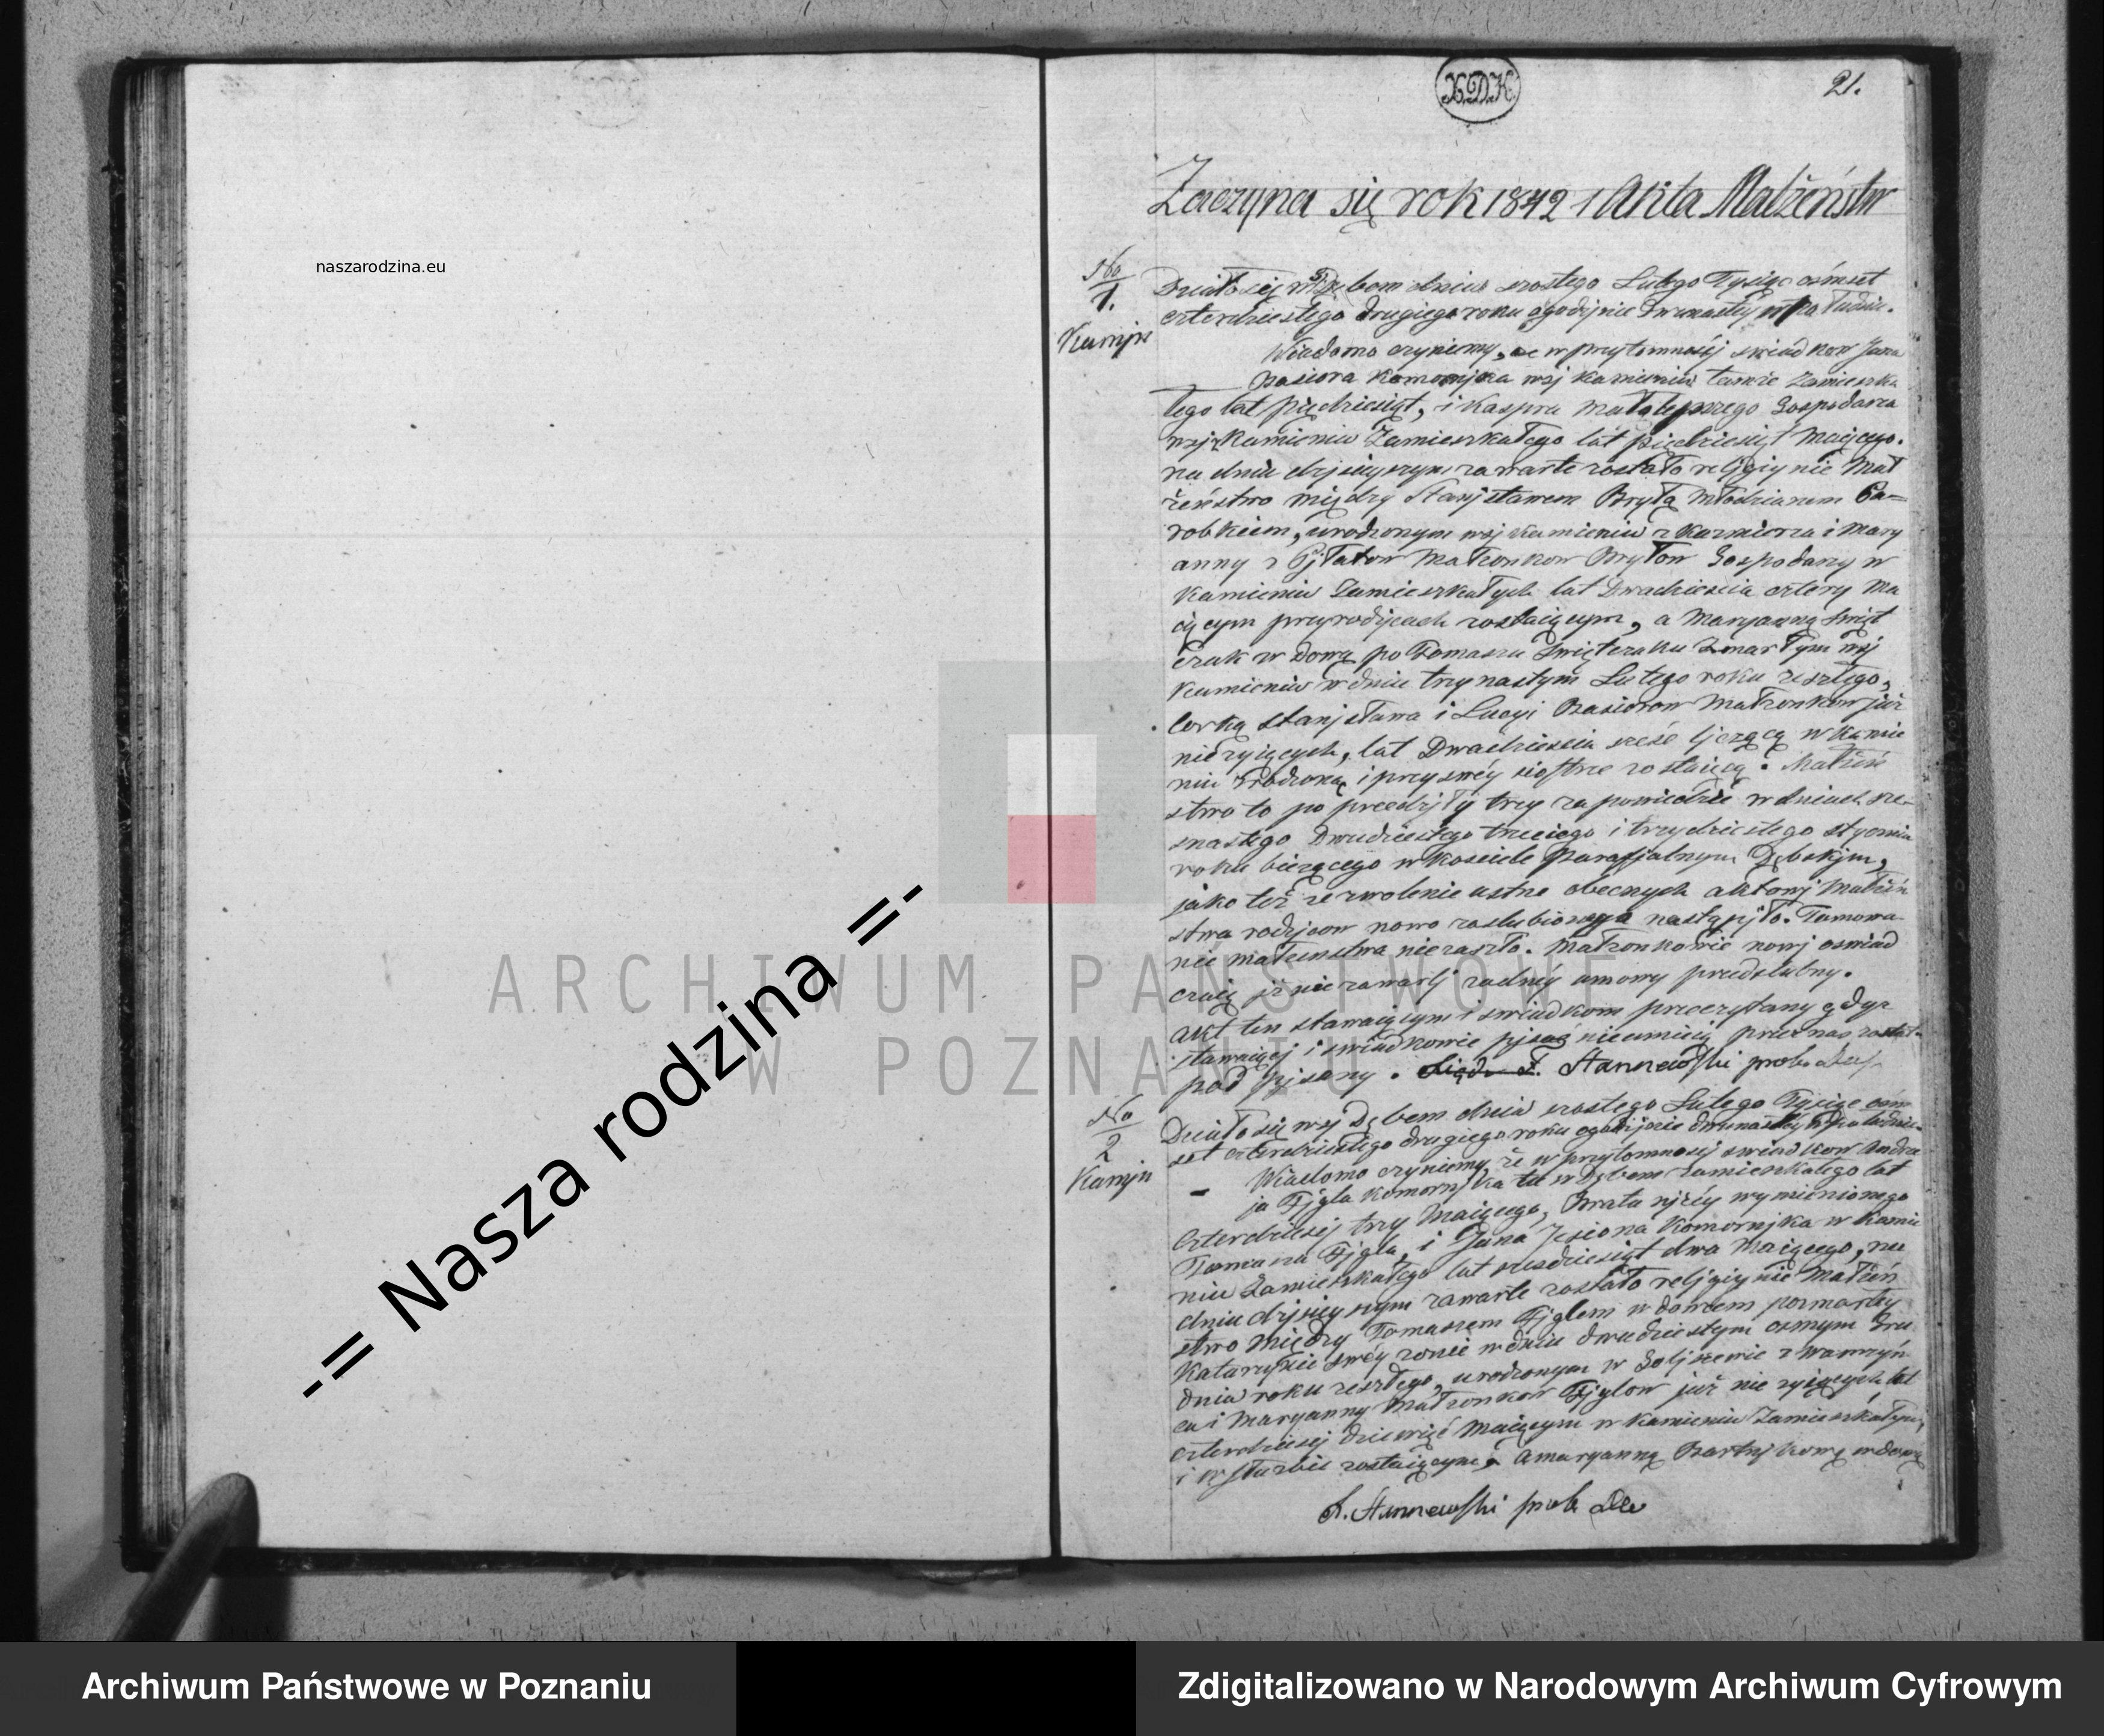 naszarodzina.eu
X.D.K.
21.
Zaczyna się rok 1842 Akta Małżeństw
No
1.
Kamjn
Działo się w Dębem dnia szostego Lutego Tysiąc ośmset
czterdziestego drugiego roku o godzjnie dwunasty w Południe.
Wiadomo czyniemy, że w przytomności swiadkow Jana
Basiora Komornjka wsj Kamieniu tamże zamieszka
łego lat pięćdziesiąt, i Kaspra Gospodarza
wsj Kamieniu Zamieszkałego lát pięćdziesiąt Maiącego.
na dniu dzjsieyszym zawarte zostało religiynie Mał
żeństwo między Stanjsławem Bryłą Młodzianem Pa=
robkiem, urodzonym wsj Kamieniu z Kazmierza i Mary
anny z Małzonkow Bryłow Gospodarzy w
Kamieniu Zamieszkałych lat Dwadziescia cztery Ma
iącym przy rodzjcach zostaiącym, a Maryanną Swięt
czak wdową po Tomaszu Swięteraku Zmarłym wsj
Kamieniu w dniu trzynastym Lutego roku zeszłego,
Corką Stanjsława i Lucyi Basiorow Małzonkow już
nieżyiących, lat Dwadziescia sześć ljczącą w Kamie
niu Urodzoną i przy swéy siostrze zostaiącą. Małżeń
stwo to po przedzjły trzy zapowiedzie w dniach sze-
snastego Dwudziestego trzeciego i trzydziestego stycznia
roku bieżącego w Kosciele Parafjalnym Dębskjm,
jako też zezwolenie ustne obecnych aktowj Małżeń
stwa rodzjcow nowo zaslubionego nastąpjło. Tamowa
nié małżenstwa niezaszło. Małzonkowie nowj oswiad
czaią jż nie zawarlj zadnéy umowy przedslubny.
Akt ten stawaiącym i swiadkom przeczytany gdyz
stawaiącj i swiadkowie pjsać nieumieią przez nas został
podpjsany. F. Stannewski prob.
No
2
Kamjn
Działo się wsj Dębem dnia szostego Lutego Tysiąc osm
set czterdziestego drugiego roku o godzjnie dwunasty w Południe.
Wiadomo czyniemy, że w przytomnosci swiadkow Andrze
ja Fjgla Komornjka tu w Dębem Zamieszkałego lat
Czterdziescj trzy Maiącego, Brata njzéy wymienionego
Tomasza Fjgla, i Jana Jesiona Komornjka w Kamie
niu Zamieszkałego lat szesdziesiąt dwa Maiącego, na
dniu dzjsieyszym zawarte zostało religiynie Małżeń
stwo między Tomaszem Fjglem wdowcem pozmarłéy
Katarzynie swéy zonie w dniu dwudziestym osmym Gru
dnia roku zeszłego, urodzonym w z Wawrzyń
ca i Maryanny Małzonkow Fjglow już nie zyiących lat
czterdziescj dziewięć Maiącym w Kamieniu Zamieszkałym,
i w służbie zostaiącym, a Maryanną Bartnjkową wdową
F. Stannewski prob.
ARCHIWUM PAŃSTWOWE
W POZNANIU
-= Nasza rodzina =-
Archiwum Państwowe w Poznaniu
Zdigitalizowano w Narodowym Archiwum Cyfrowym